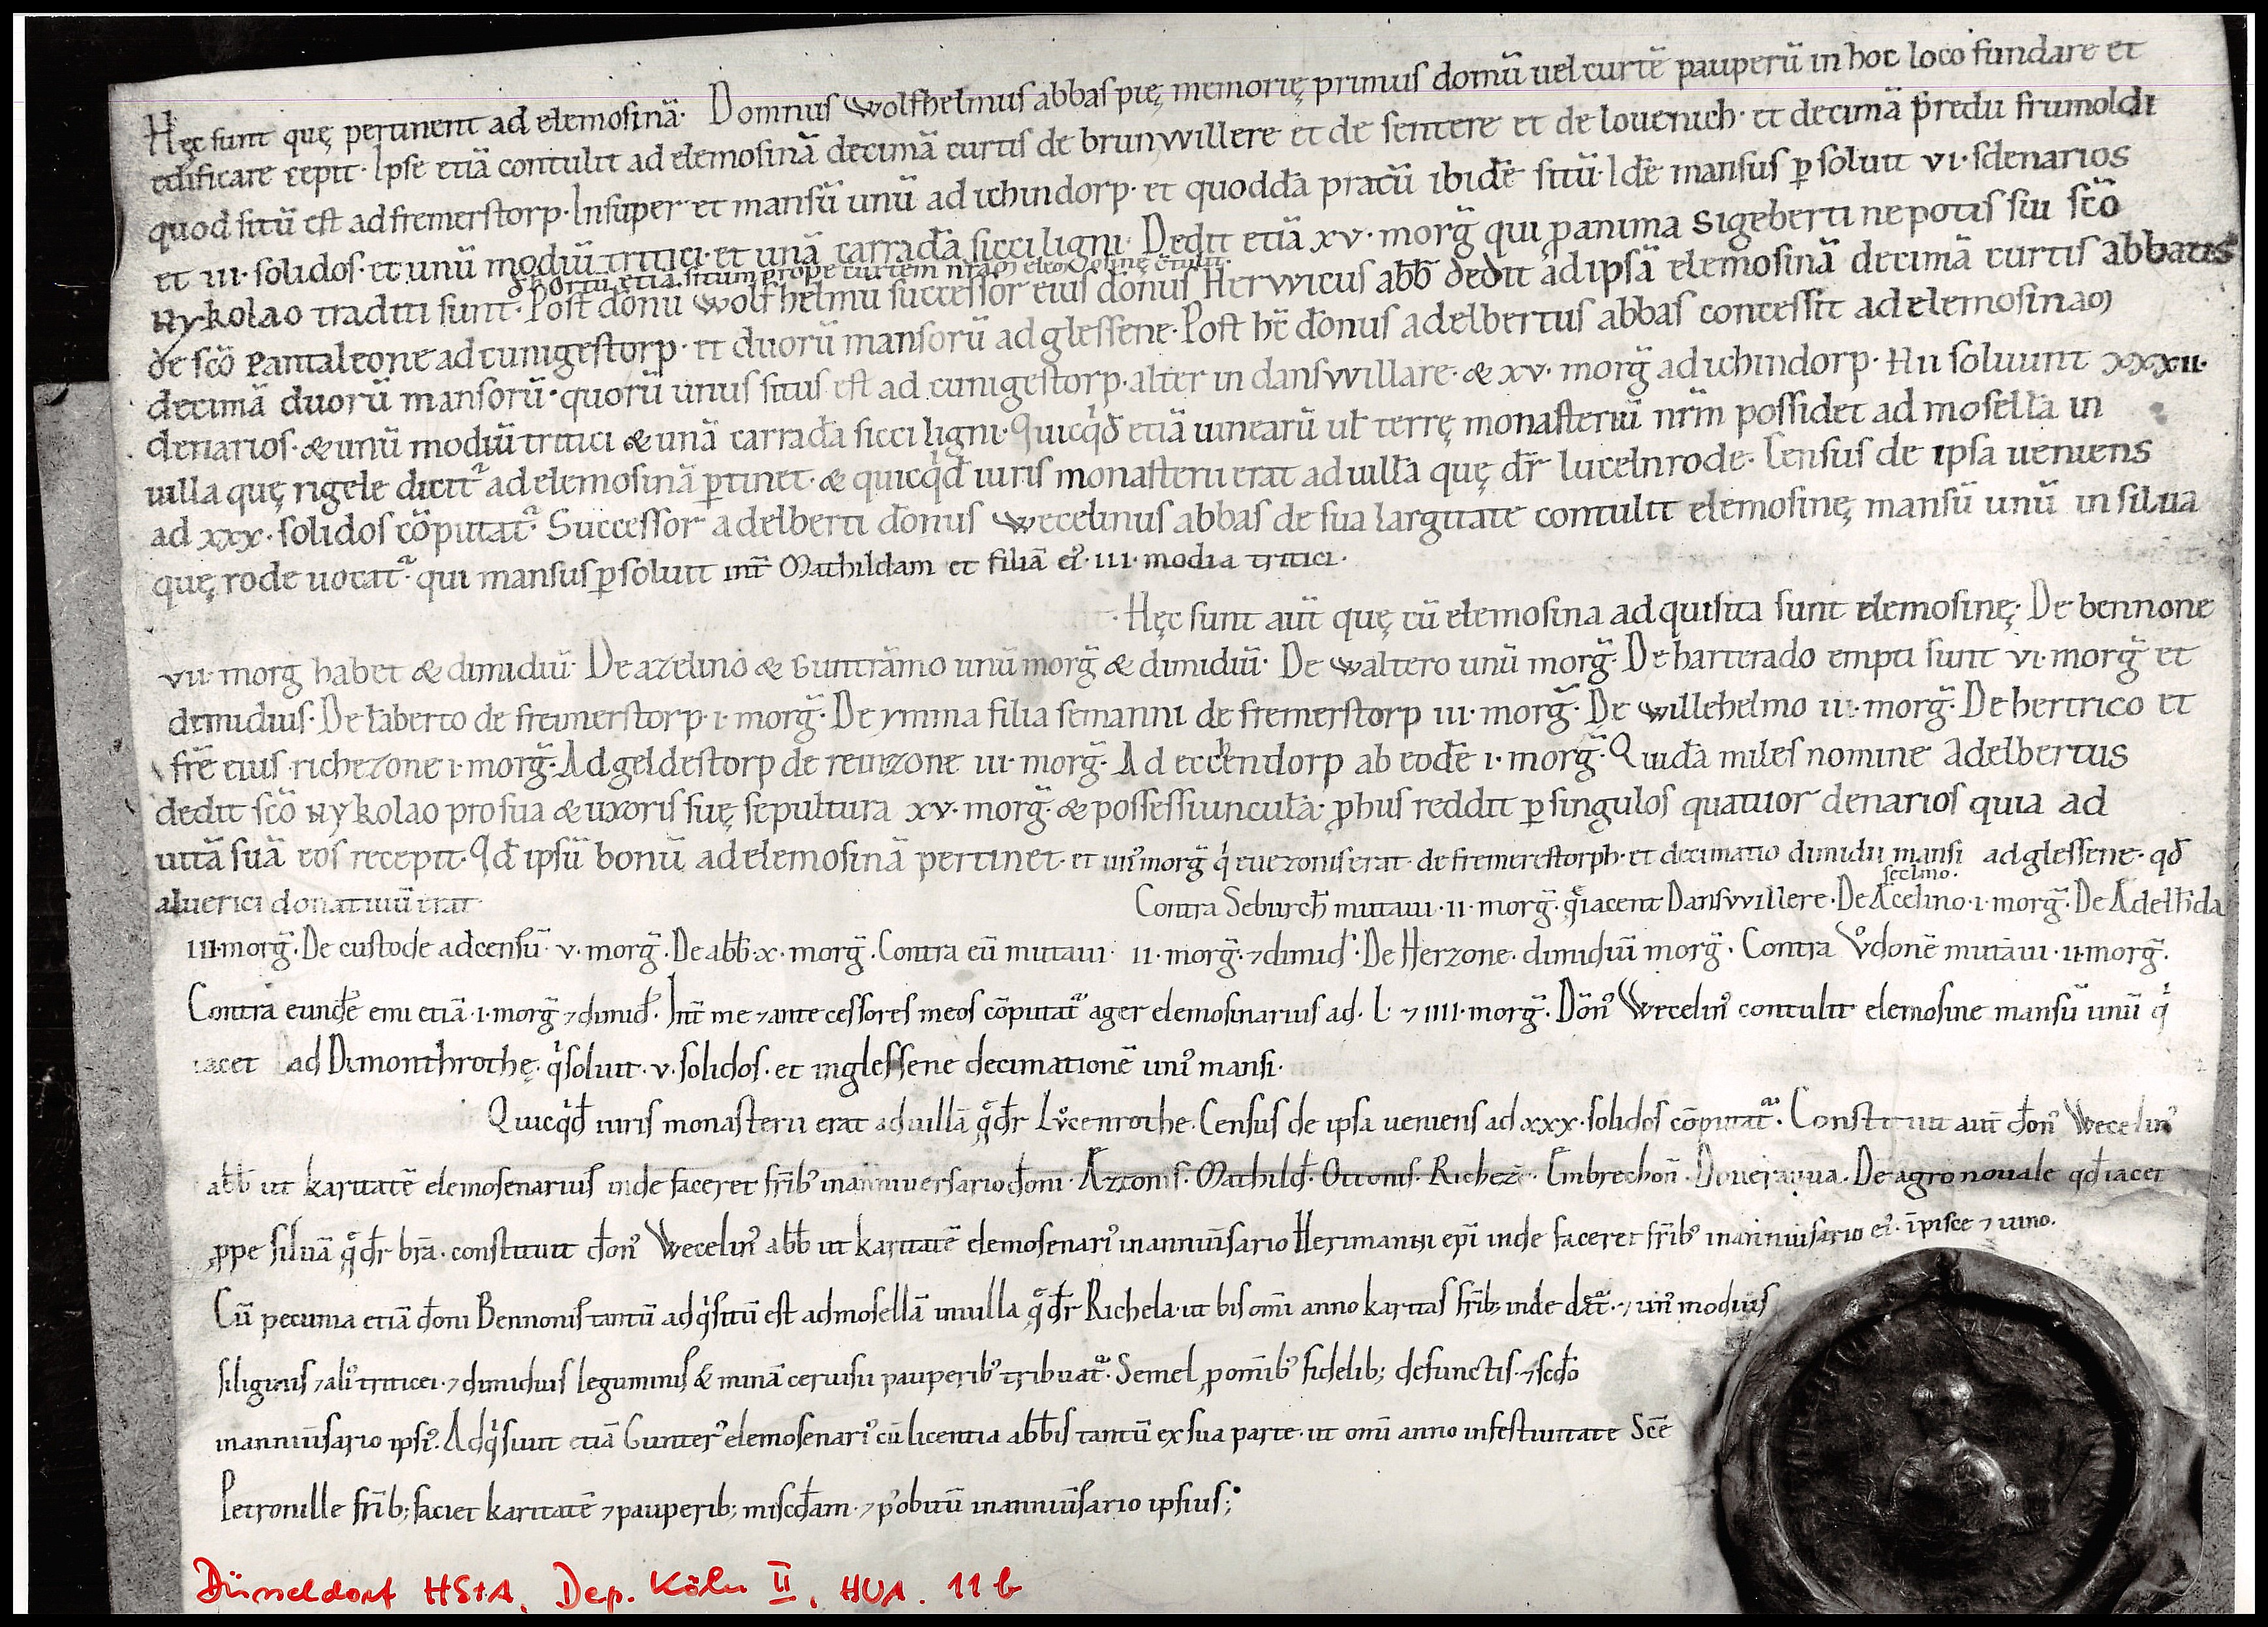 Hęc sunt quę pertinent ad elemosinā· Domnus Wolfhelmus abbas pię memorię primus domū uel curtē pauperū in hoc loco fundare et
edificare cepit· Ipse etiā contulit ad elemosinā decimā curtis de brunwillere et de sentere et de louenich· et decimā p̄redii frumoldi
quod sitū est ad fremerstorp· Insuper et mansū unū ad ichindorp· et quoddā pratū ibidē sitū· Idē mansus ꝑsoluit vi· denarios
et iii· solidos· et unū modiū tritici· et unā carradā sicci ligni· Dedit etiā xv· morḡ qui ꝓ anima Sigeberti nepotis sui sc̄o
& hortū etiā situm prope curtem nr̄am elemosinę c̄tulit·
Nykolao traditi sunt· Post dōnū Wolfhelmū successor eius dōnus Herwicus abb̄ dedit ad ipsā elemosinā decimā curtis abbatis
de sc̄o Pantaleone ad cunigestorp· et duorū mansorū ad glessene· Post hc̄ dōnus adelbertus abbas concessit ad elemosinam
decimā duorū mansorū· quorū unus situs est ad cunigestorp· alter in danswillare· & xv· morḡ ad ichindorp· Hii soluunt xxxii·
denarios· & unū modiū tritici & unā carradā sicci ligni· Quicqͥd etiā uinearū ul̄ terrę monasteriū nr̄m possidet ad mosellā in
uilla quę rigele dicit᷑ ad elemosinā ꝑtinet· & quicqͥd iuris monasterii erat ad uillā quę dr̄ lucelnrode· Census de ipsa ueniens
ad xxx· solidos cōputat᷑· Successor adelberti dōnus Wecelinus abbas de sua largitate contulit elemosinę mansū unū in silua
quę rode uocat᷑· qui mansus ꝑsoluit int̄ Mathildam et filiā eiꝰ· iii· modia tritici·
Hęc sunt aut̄ quę cū elemosina adquisita sunt elemosinę· De bennone
vii· morḡ habet & dimidiū· De azelino & Guntrāmo unū morḡ & dimidiū· De Waltero unū morḡ· De harterado empti sunt vi· morḡ et
dimidius· De taberto de fremerstorp· i· morḡ· De ymma filia semanni de fremerstorp iii· morḡ· De Willehelmo iii· morḡ· De hertrico et
fr̄e eius richezone i· morḡ· Ad geldestorp de reinzone iii· morḡ· Ad eckendorp ab eodē i· morḡ· Quidā miles nomine Adelbertus
dedit sc̄o Nykolao pro sua & uxoris suę sepultura xv· morḡ· & possessiunculā· ꝓ hus reddit ꝑ singulos quatuor denarios quia ad
uitā suā eos recepit· Qd̄ ipsū bonū ad elemosinā pertinet· et morḡ qͥ erat· de fremerestorph· et decimatio dimidii mansi ad glessene· qd̄
scelino·
aluerici donatiuū erat·
Contra Seburch̄ mutaui· ii· morḡ· q̄ iacent Danswillere· De Acelino· i· morḡ· De Adelh̄ida
III· morḡ· De custode ad censū· v· morḡ· De abb̄· x· morḡ· Contra eū mutaui· ii· morḡ· ⁊ dimid̄· De Herzone· dimidiū morḡ· Contra Vͦdonē mutaui· ii· morḡ·
Contra eundē emi etiā· i· morḡ ⁊ dimid̄· Int̄ me ⁊ antecessores meos cōputat᷑ ager elemosinarius ad· L· ⁊ IIII· morḡ· Dōnꝰ Wecelinꝰ contulit elemosine mansū unū qͥ
iacet ad Dimonthrothę· qͥ soluit· v· solidos· et in glessene decimationē uniꝰ mansi·
Quicqͥd iuris monasterii erat ad uillā q̄ dr̄ Lvͦcenrothe· Census de ipsa ueniens ad xxx· solidos cōputat᷑· Constituit aut̄ dōnꝰ Wecelinꝰ
abb̄ ut karitatē elemosenarius inde faceret fr̄ibꝰ in anniuersario dōni· Azzonis· Mathild̄· Ottonis· Richezē· Embrechon̄· De agro nouale qd̄ iacet
ꝓpe siluā q̄ dr̄ brā· constituit dōnꝰ Wecelinꝰ abb̄ ut karitatē elemosenariꝰ in anniūsario Herimanni epī inde faceret fr̄ibꝰ in anniūsario eiꝰ· ī pisce ⁊ uino·
Cū pecunia etiā dōni Bennonis tantū adqͥsitū est ad mosellā in uilla q̄ dr̄ Richela· ut bis om̄i anno karitas fr̄ib; inde dat᷑· ⁊ unꝰ modius
siliginis ⁊ aliꝰ triticei· ⁊ dimidius leguminis & minā ceruisii pauperibꝰ tribuat᷑· Semel ꝓ om̄ibꝰ fidelib; defunctis· ⁊ scd̄o
in anniūsario ipsiꝰ· Adqͥsiuit etiā Gunterꝰ elemosenariꝰ cū licentia abb̄is tantū ex sua parte· ut om̄i anno in festiuitate Sc̄e
Petronille fr̄ib; faciet karitatē ⁊ pauperib; miscd̄iam· ⁊ pꝰ obitū in anniūsario ipsius;
Düsseldorf HStA, Dep. Köln II, HUA. 11 b